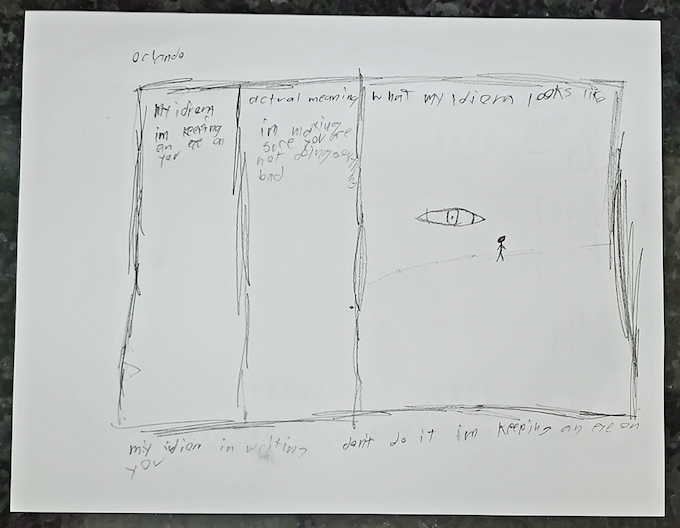 Orlando
my idiom
im keeping
an eye on
you
actual meaning
im making
sure you are
not doing something
bad
what my idiom looks like
my idiom in writing don't do it im keeping an eye on
you